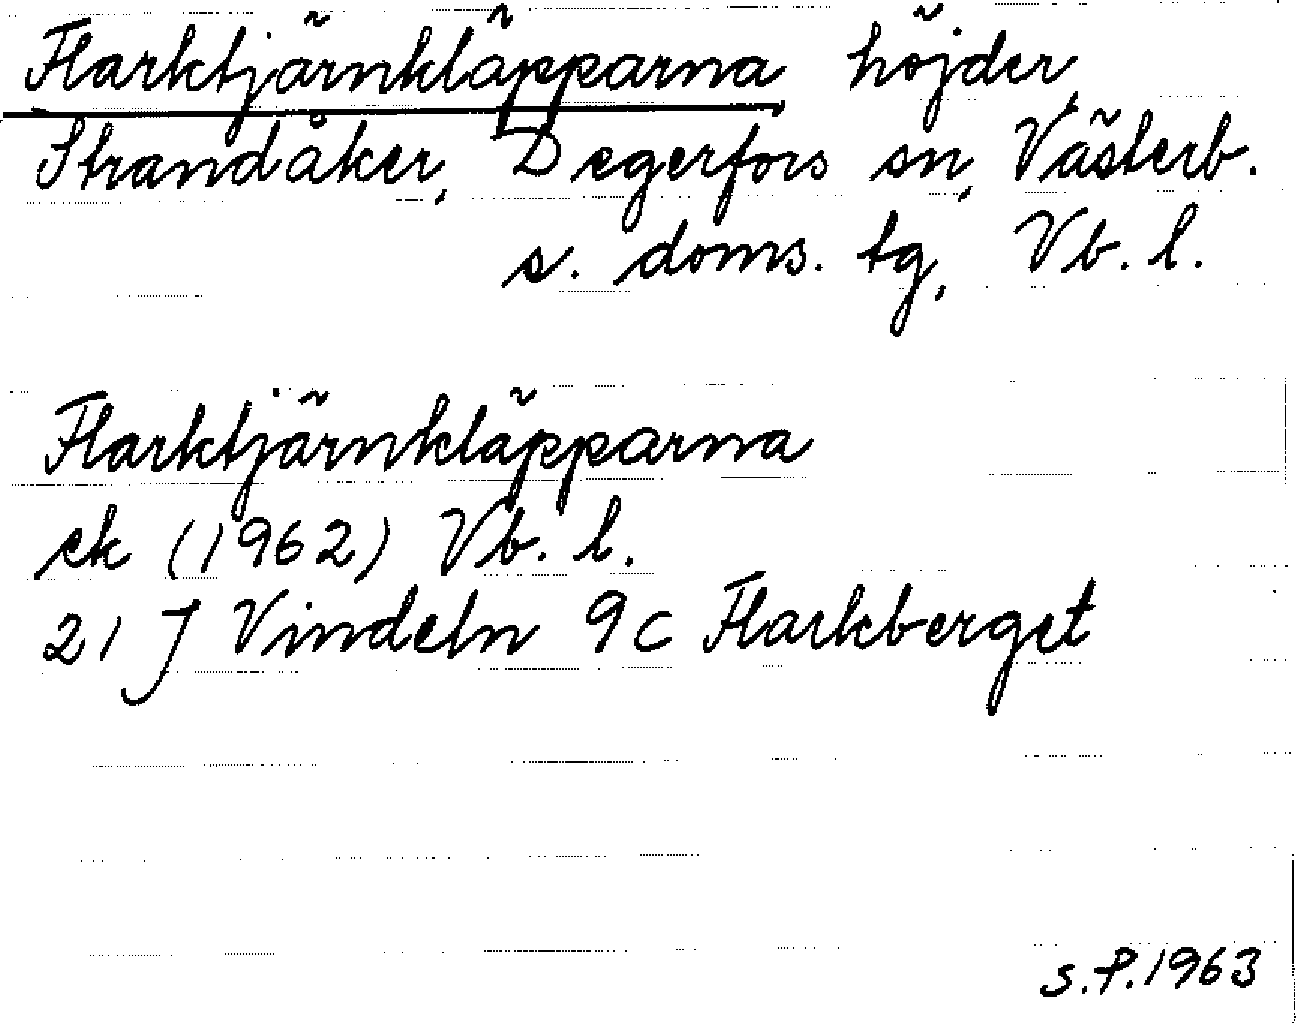 Flarktjärnkläpparna, höjder,
Strandåker, Degerfors sn, Västerb.
s. doms. tg, Vb. l.
Flarktjärnkläpparna
ek (1962) Vb. l.
21 J Vindeln 9c Flarkberget
S.P. 1963